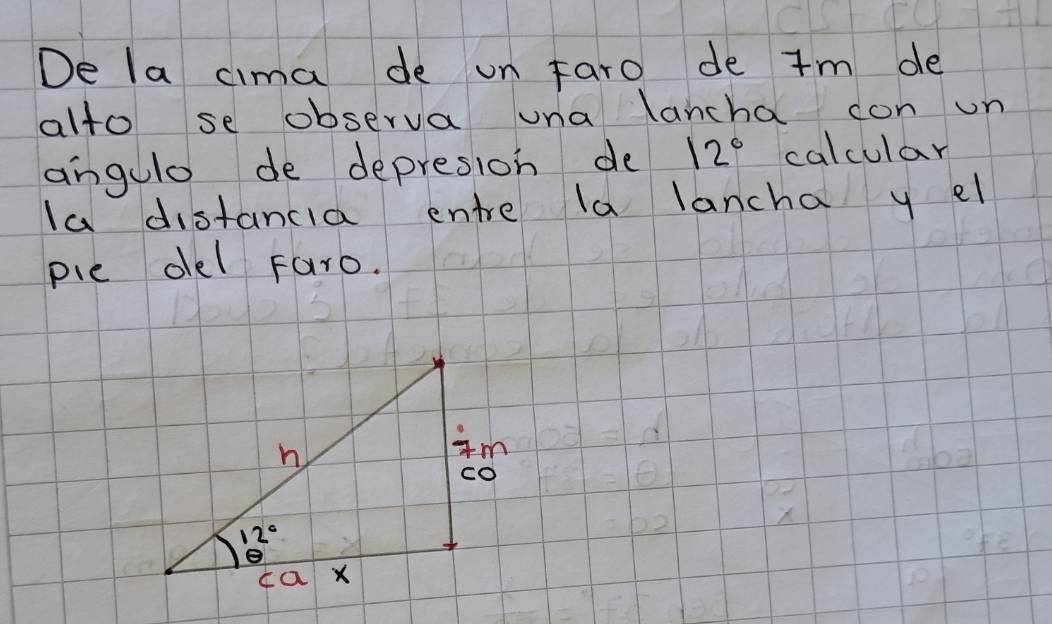 De la cima de un faro de 7m de
alto se observa una lancha con un
ángulo de depresión de 12° calcular
la distancia entre la lancha y el
pie del faro.
h
7m
co
12°
θ
ca x